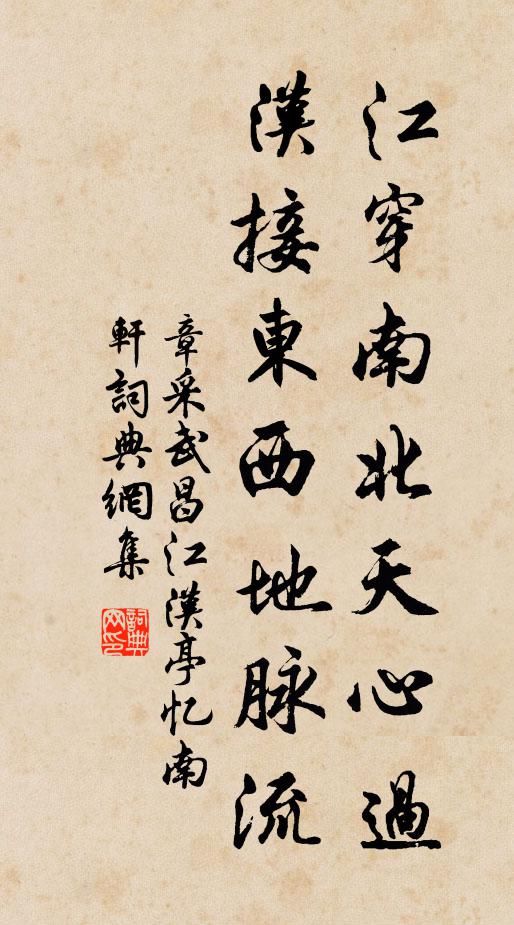 江穿南北天心過
漢接東西地脉流
章采武昌江漢亭忆南
軒詞典網集
詞典网印